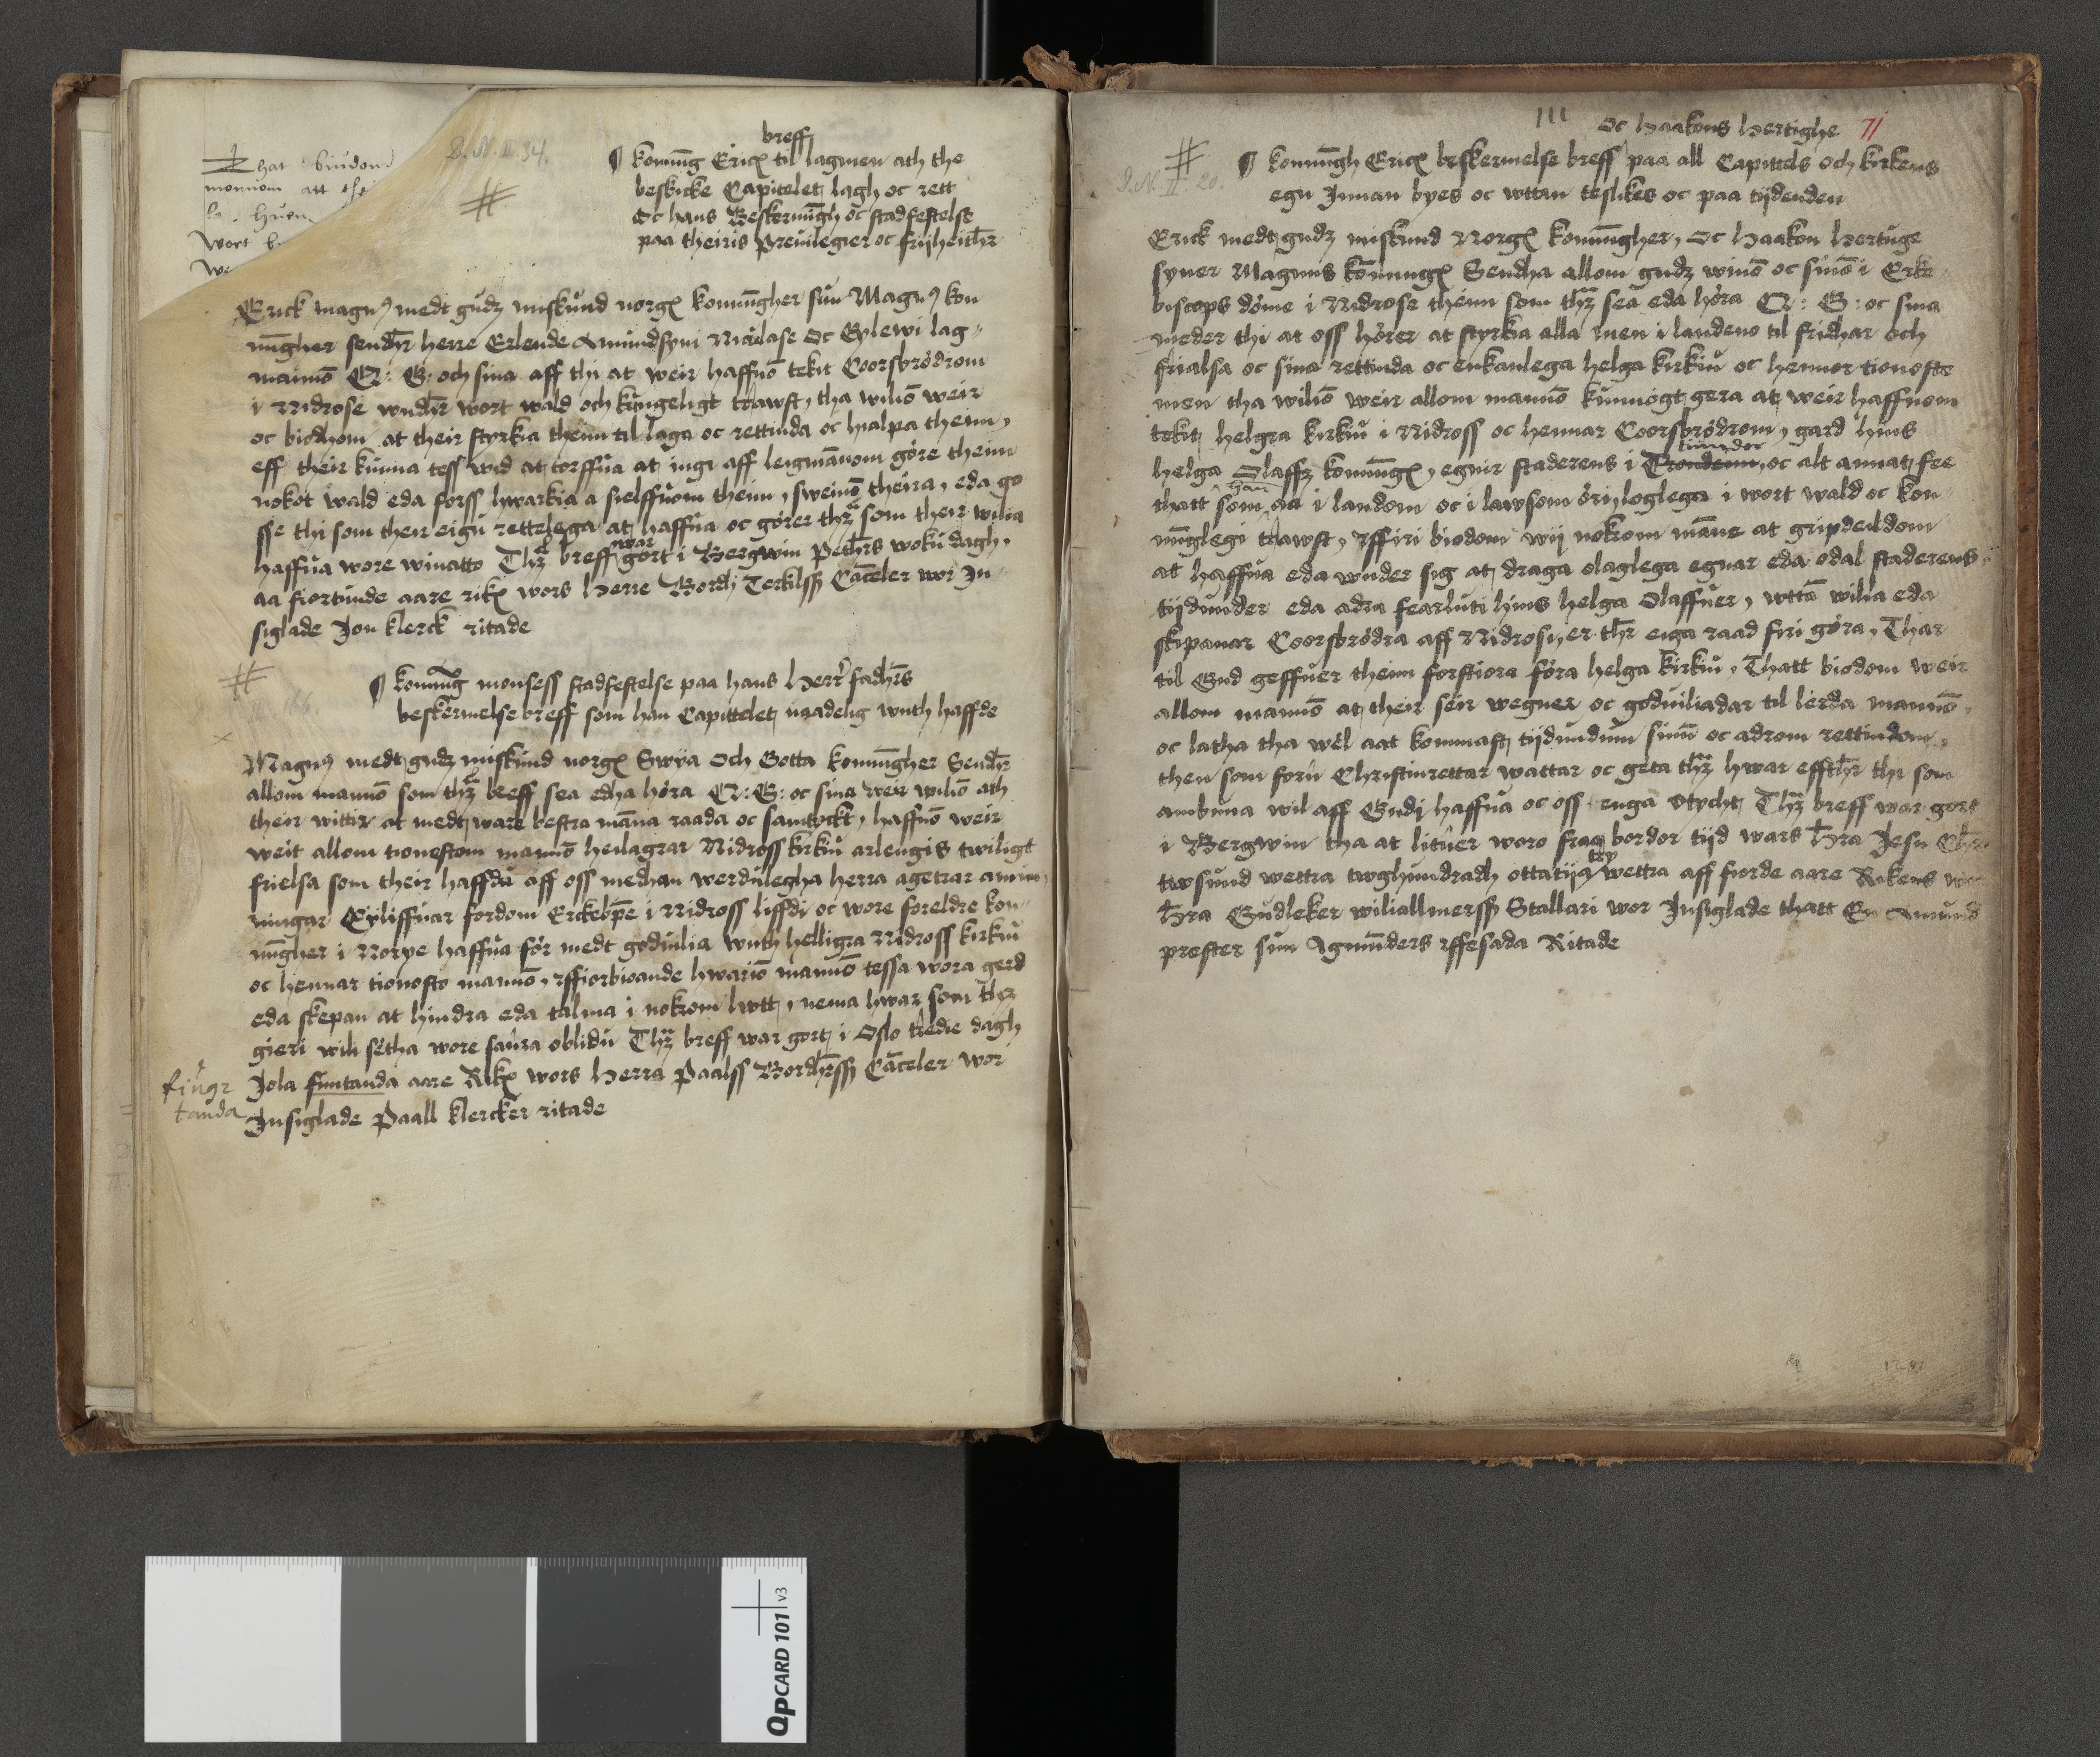 That biudom
monnom att the
la. huem
Wort
We
D. N. II. 34.
breff
¶ konu̅g Ericx til lagmen ath the
beskicke Capitelet lagh oc rett
Oc hans Beskermu̅gh oc stadfestelse
paa theiris preuilegier oc frijheith̅r
Erick magn9 medt gudz miskund norgx konu̅gher sun Magn9 kon
nu̅gher send̅r herre Erlende Amundsyni Niculase Oc Eylewi lag=
manno̅ Q: G: och sina aff thi at weir haffuo̅ tekit Coorsbrödrom
i Nidrose wnd̅r wort wald och kungeligt trawst, tha wilio̅ weir
oc biodhom at their styrka theim til laga oc rettinda oc hialpa theim,
eff their kunna tess wid at torffua at ingi aff leigma̅nom göre theim
nokot wald eda forss hwarkia a sielffuom theim, sweino̅ theira, eda go
sse thi som their eigu rettelega at haffua oc görer thz̅ som their wilia
haffua wore winatto Thz̅ breff war gört i Bergwin Peth̅rs woku dagh,
aa fiortunde aare rikx wors Herre Bordh Serkilss Ca̅celer wor In=
siglade Jon klerck ritade
166.
¶ konu̅g monsess stadfestelse paa hans Herr̅ fadh̅rs
beskermelse breff som han Capittelet naadelig wnth haffde
Magn9 medt gudz miskund norgx Swya Och Gotta konu̅gher Send̅r
allom manno̅ som thz̅ breff sea edha höra Q: G: oc sina weir wilio̅ ath
their wittir at medt ware bestra ma̅na raada oc samtyckt, haffuo̅ weir
weit allom tionestom manno̅ heilagrar Nidross kirkiu arlengis twiligt
frielsa som their haffdu aff oss medhan werdulegha herra agetrar amin
ningar Eyliffuar fordom Erckebp̅e i Nidross liffdi oc wore foreldre kon
nu̅gher i Norye haffua för medt goduilia wnth helligra Nidross kirkiu
oc hennar tionosto manno̅, yffiorbioande hwario̅ manno̅ tessa wora gerd
eda skepan at hindra eda talma i nokrom lwtt, nema hwar som thz
gieri wili sétha wore saura oblidu Thz̅ breff war gort i Oslo tredie dagh
fiugr
tanda
Jola fimtanda aare Rikx wors Herra Paalss Bordh̅rss Ca̅celer wor
Insiglade Paall klercker ritade
111
Oc Haakons Hertighe 71
D. N. II. 20.
¶ konu̅gh Ericx beskermelse breff paa all Capittels och kirkens
egn Innan byes oc wttan teslikes oc paa tijdenden
Erick medt gudz miskund Norgx konu̅gher, Oc Haakon Hertuge
syner Magnus konungx Sendha allom gudz wino̅ oc sino̅ i Erke=
biscops döme i Nidrose theim som thz̅ sea eda höra Q: G: oc sina
meder thi at oss hörer at styrkia alla men i landeno til fridhar och
frialsa oc sina rettinda oc enkanlega helga kirkiu oc hennar tionoste
men tha wilio̅ weir allom manno̅ kunnogt gera at weir haffuom
tekit helgra kirkiu i Nidross oc hennar Coorsbrödrom, gard hins
helga Olaffz konu̅gx, egnir staderens i Trondenn, tiunder oc alt annat fee
thatt som han aa i landom oc i lawsom örijloglega i wort wald oc kon=
nu̅glegi trawst, yffiri biodom wij nokrom ma̅ne at gripdeildom
at haffua eda wnder sig at draga olaglega egnar eda odal staderens
tijdunder eda adra fearluti hins helga Olaffuer, wtta̅ wilia eda
skipanar Coorsbrödra aff Nidrosi, er th̅r eiga raad firi göra, Thar
til Gud geffuer theim forstiora föra helga kirkiu, Thatt biodom weir
allom manno̅ at their séir wegner oc goduiliadar til lerda manno̅,
oc latha tha wel aat kommast tijdundum sinu̅ oc adrom rettindom,
then som foru Christinrettar wattar oc géta thz̅ hwar effth̅r thi som
ambuna wil aff Gudi haffua oc oss enga Otycht Thz̅ breff war gort
i Bergwin tha at lituer woro fra bordor tijd wars H̅ra Jesu Ch̅r
twsund wettra twghundradh ottatija try wettra aff fiorde aare Rikens
H̅ra Gudleker wiliallmerss Stallari wor Insiglade thatt En Amund
prester sun Agmu̅nders yffesada Ritade